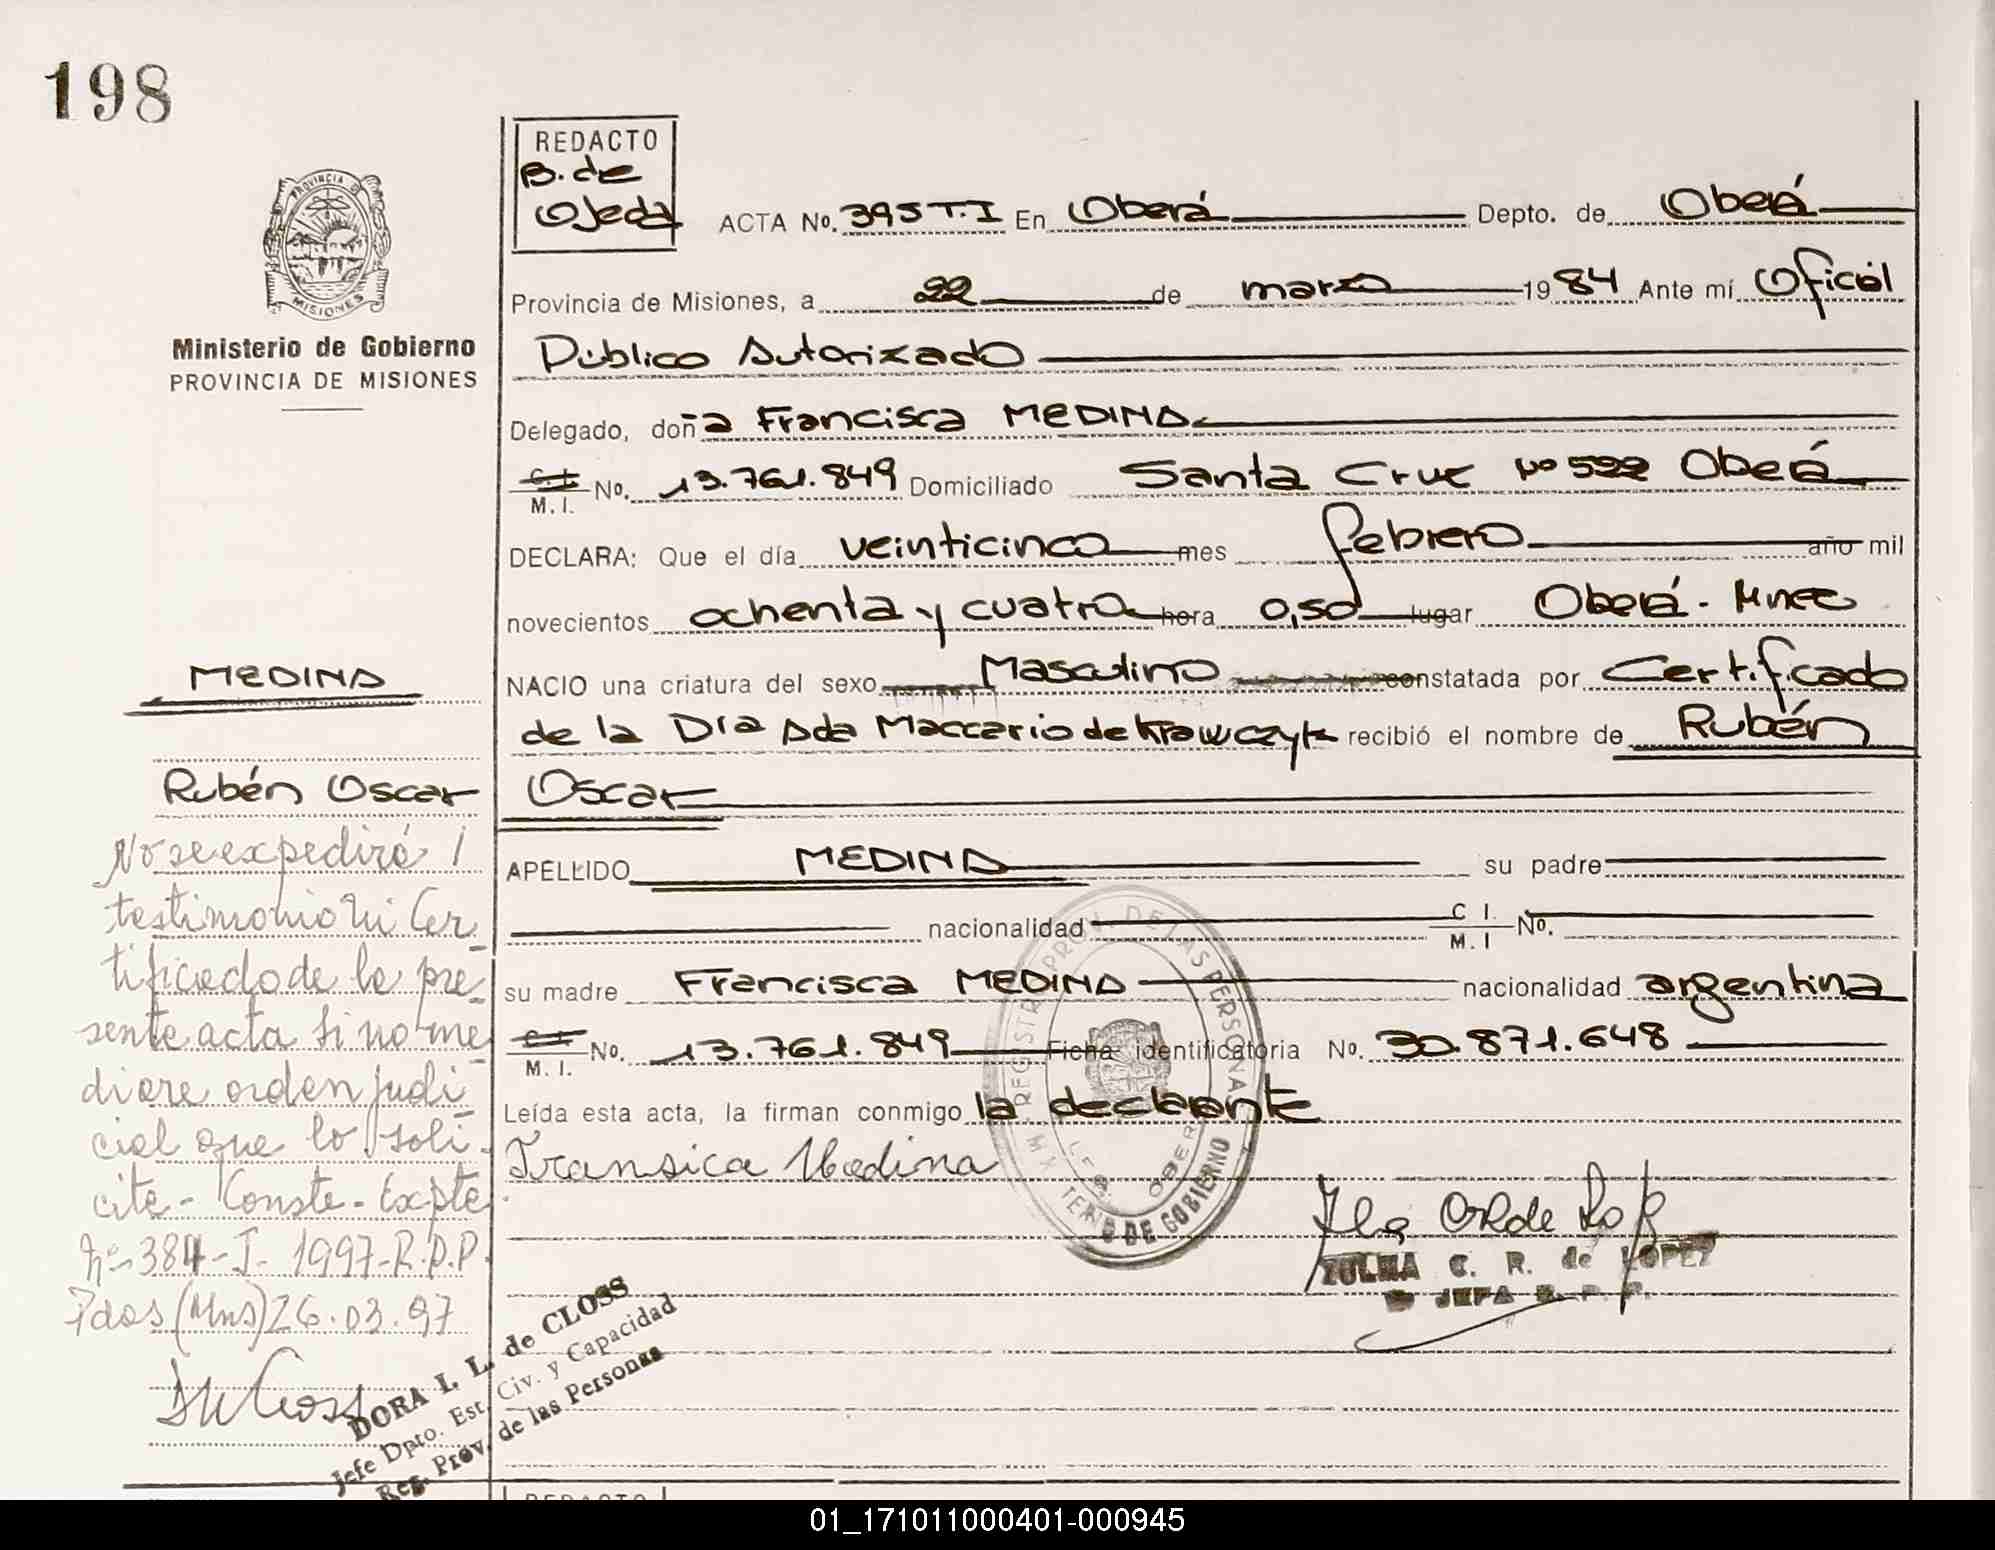 198
REDACTO
B. de
Ojeda
ACTA No. 395 T.I En Oberá Depto. de Oberá
Provincia de Misiones, a 22 de marzo 1984 Ante mí Oficial
Público Autorizado
Delegado, doña Francisca MEDINA
C.I. M.I. No. 13.761.849 Domiciliado Santa Cruz Nº 522 Oberá
DECLARA: Que el día veinticinco mes febrero año mil
novecientos ochenta y cuatro hora 0,50 lugar Oberá - Mnes
NACIO una criatura del sexo Masculino constatada por Certificado
de la Dra Ada Maccario de Krawczyk recibió el nombre de Rubén
Oscar
APELLIDO MEDINA su padre
nacionalidad C I. M. I No.
su madre Francisca MEDINA nacionalidad argentina
C.I. M. I. No. 13.761.849 Ficha identificatoria No. 30.871.648
Leída esta acta, la firman conmigo la declarante
Fransica Medina
ZULMA C. R. de LOPEZ
JEFA R. P. P.
REGISTRO PROV. DE LAS PERSONAS
OBERA
DE GOBIERNO
PROVINCIA DE
MISIONES
Ministerio de Gobierno
PROVINCIA DE MISIONES
MEDINA
Rubén Oscar
No se expedirá
testimonio ni Cer-
tificado de la pre-
sente acta si no me-
diare orden judi-
cial que lo soli-
cite - Conste - Expte
Nº 384-I-1997-R.P.P.
Pdas (Mns) 26.03.97
DORA I. L. de CLOSS
Jefe Dpto. Est. Civ. y Capacidad
Reg. Prov. de las Personas
REDACTO
01_171011000401-000945